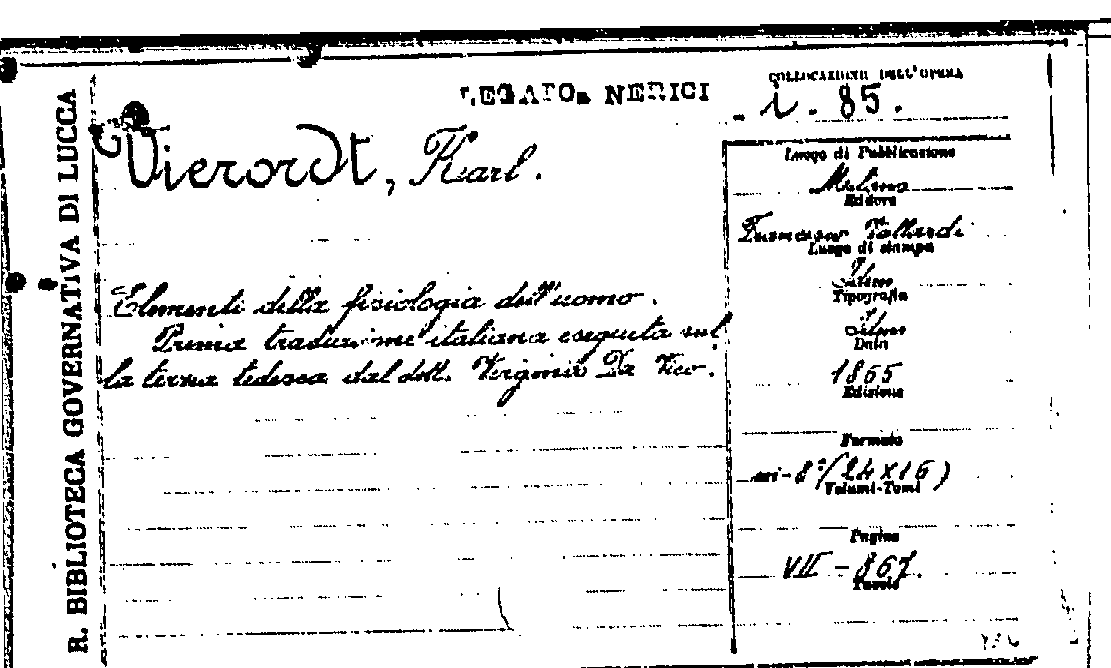 R. BIBLIOTECA GOVERNATIVA DI LUCCA
LEGATO NERICI
COLLOCAZIONE DELL'OPERA
i. 85.
Vierordt, Karl.
Elementi della fisiologia dell'uomo.
Prima traduzione italiana eseguita sul
la terza tedesca dal dott. Virginio Da Vico.
Luogo di Pubblicazione
Milano
Editore
Francesco Vallardi
Luogo di stampa
Idem
Tipografia
Idem
Data
1865
Edizione
Formato
in-8° (24×16)
Volumi-Tomi
Pagine
VII - 867.
Tavole